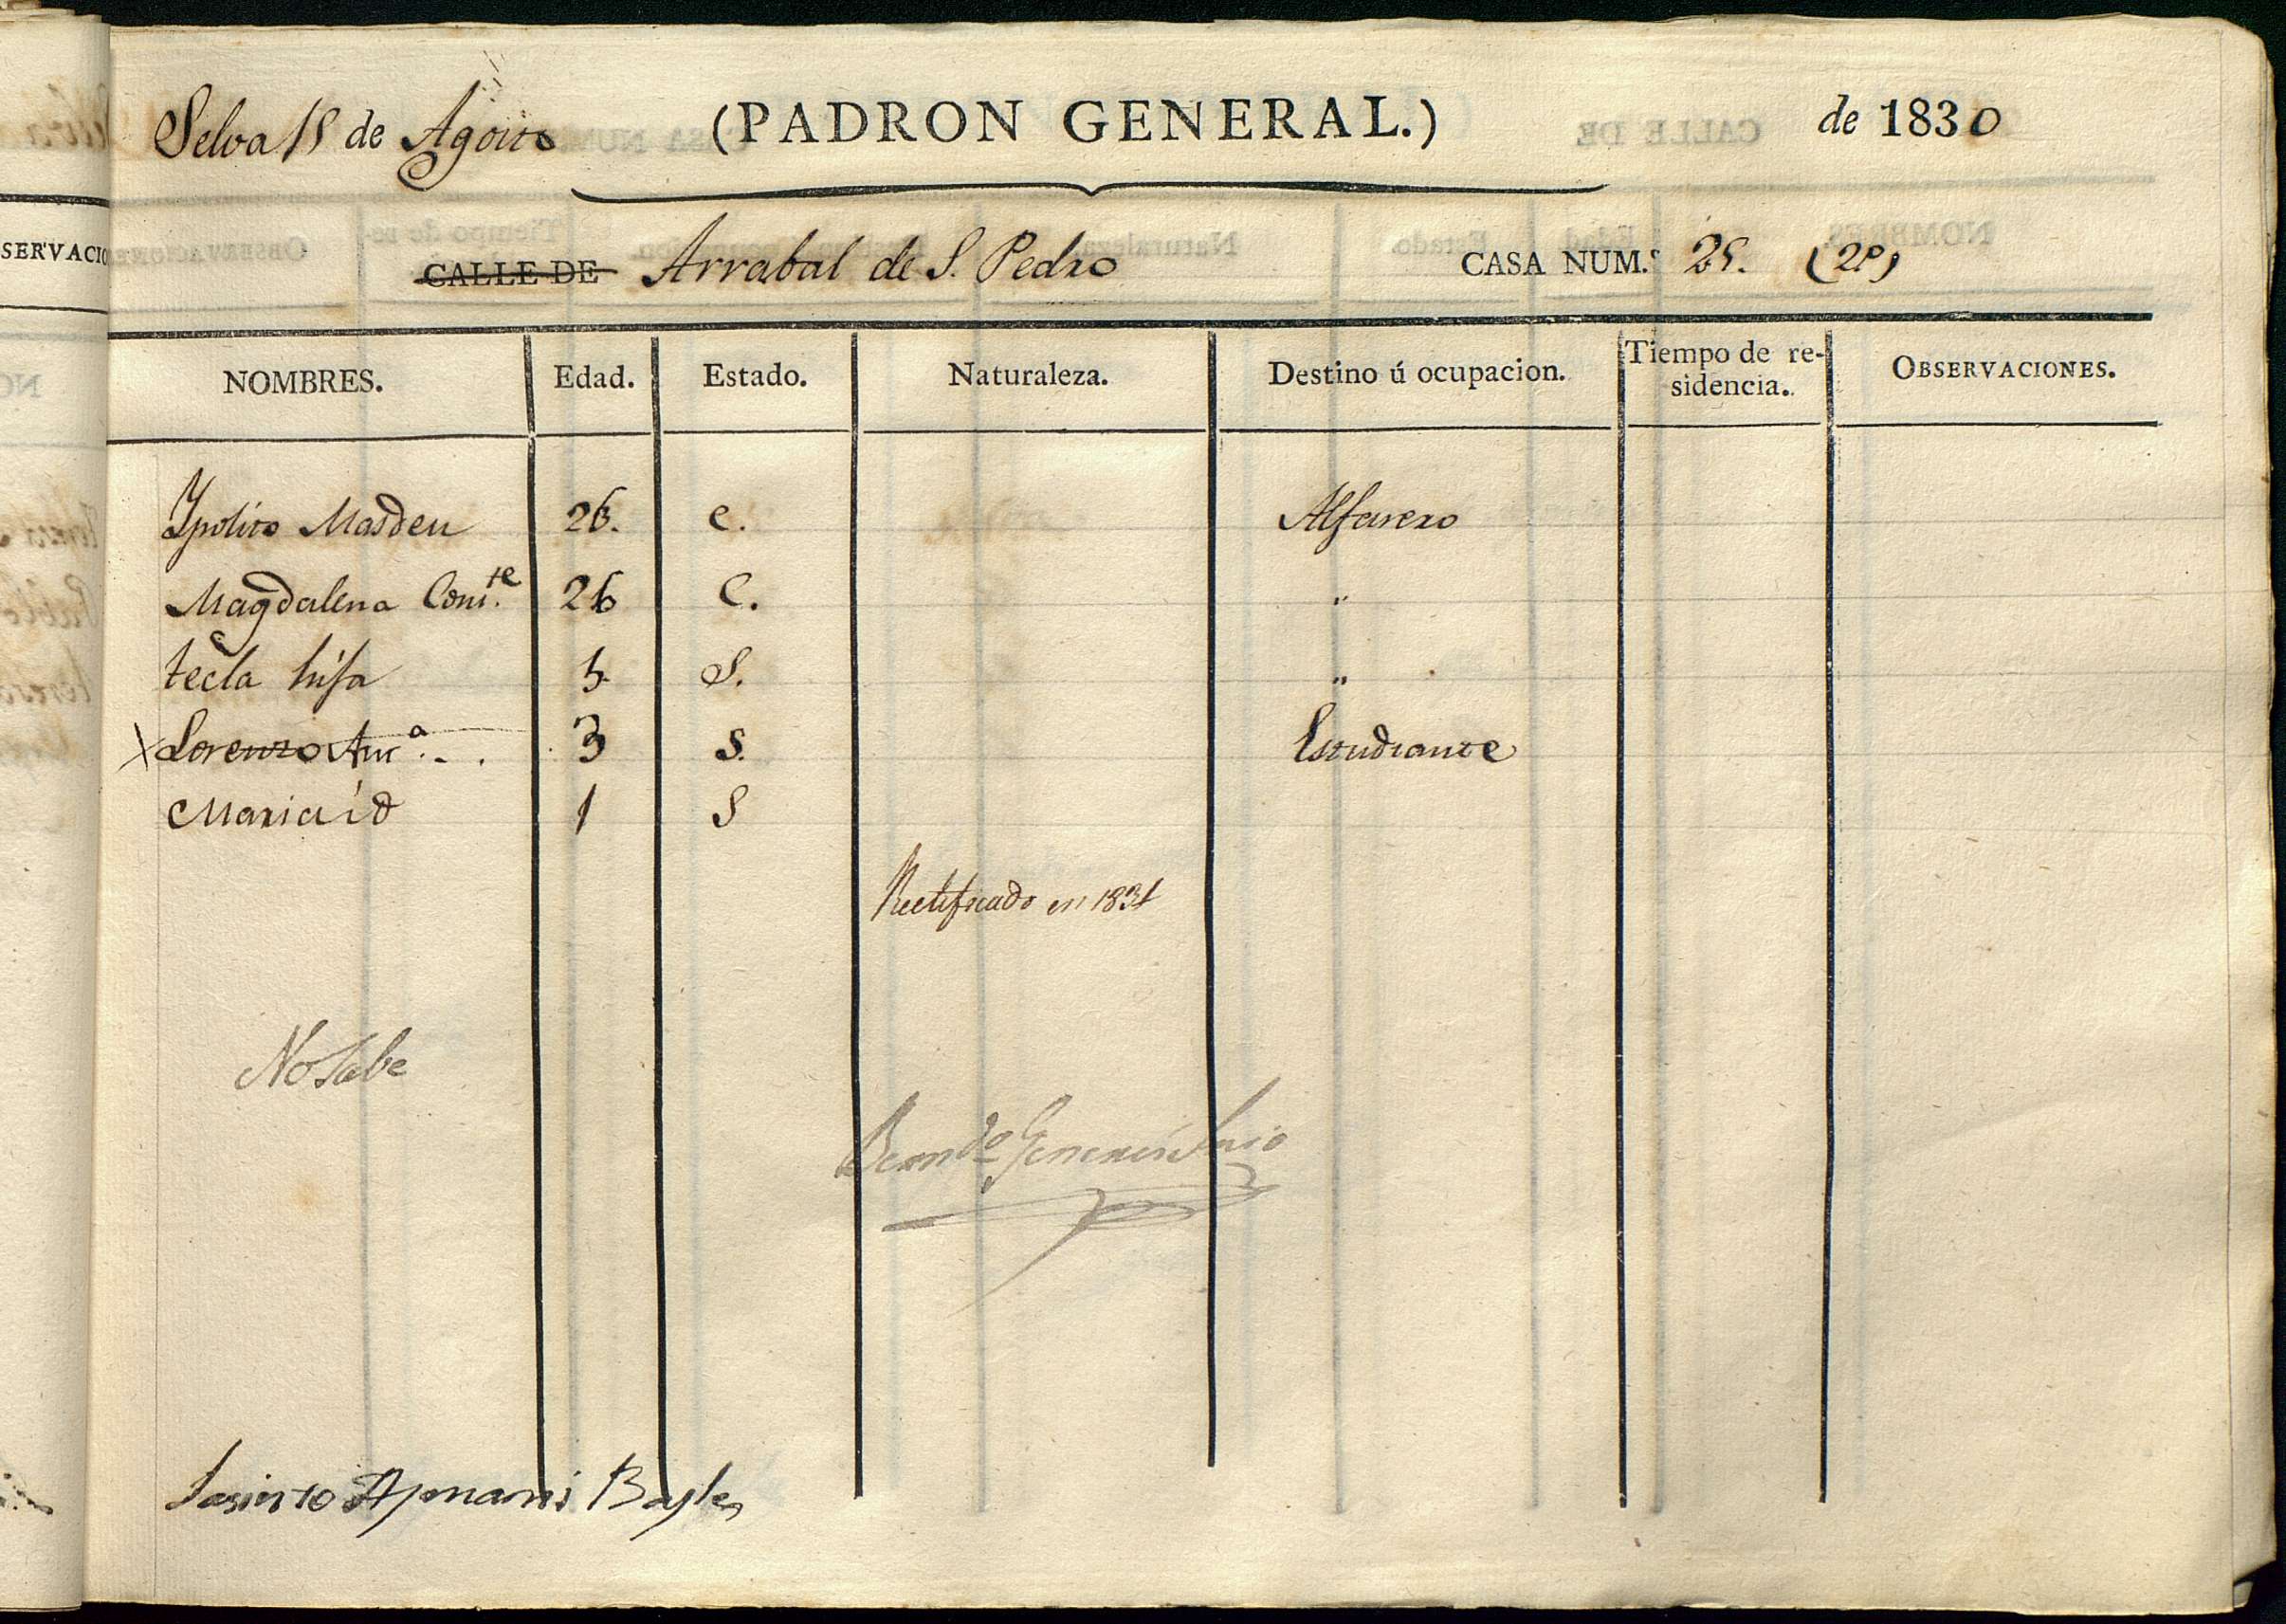 Selva 15 de Agosto (PADRON GENERAL.) de 1830
CALLE DE Arrabal de S. Pedro CASA NUM.º 25. (2º)
NOMBRES. Edad. Estado. Naturaleza. Destino ú ocupacion. Tiempo de re-sidencia. OBSERVACIONES.
Ypolito Masdeu 26. C. Alfarero
Magdalena Cons.te 26 C. "
tecla hija 5 S. "
Lorenzo 3 S. Estudiante
Maria id 1 S
Rectificado en 1831
No Sabe